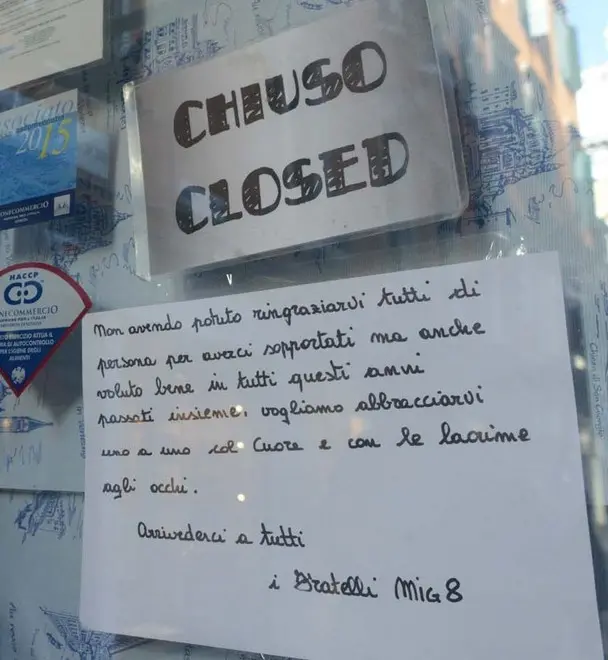 sociato
2015
CONFCOMMERCIO
HACCP
CONFCOMMERCIO
DI AUTOCONTROLLO
PER L'IGIENE DEGLI
ALIMENTI
CHIUSO
CLOSED
Non avendo potuto ringraziarvi tutti di
persona per averci sopportati ma anche
voluto bene in tutti questi anni
passati insieme, vogliamo abbracciarvi
uno a uno col Cuore e con le lacrime
agli occhi.
Arrivederci a tutti
i Fratelli MiG8